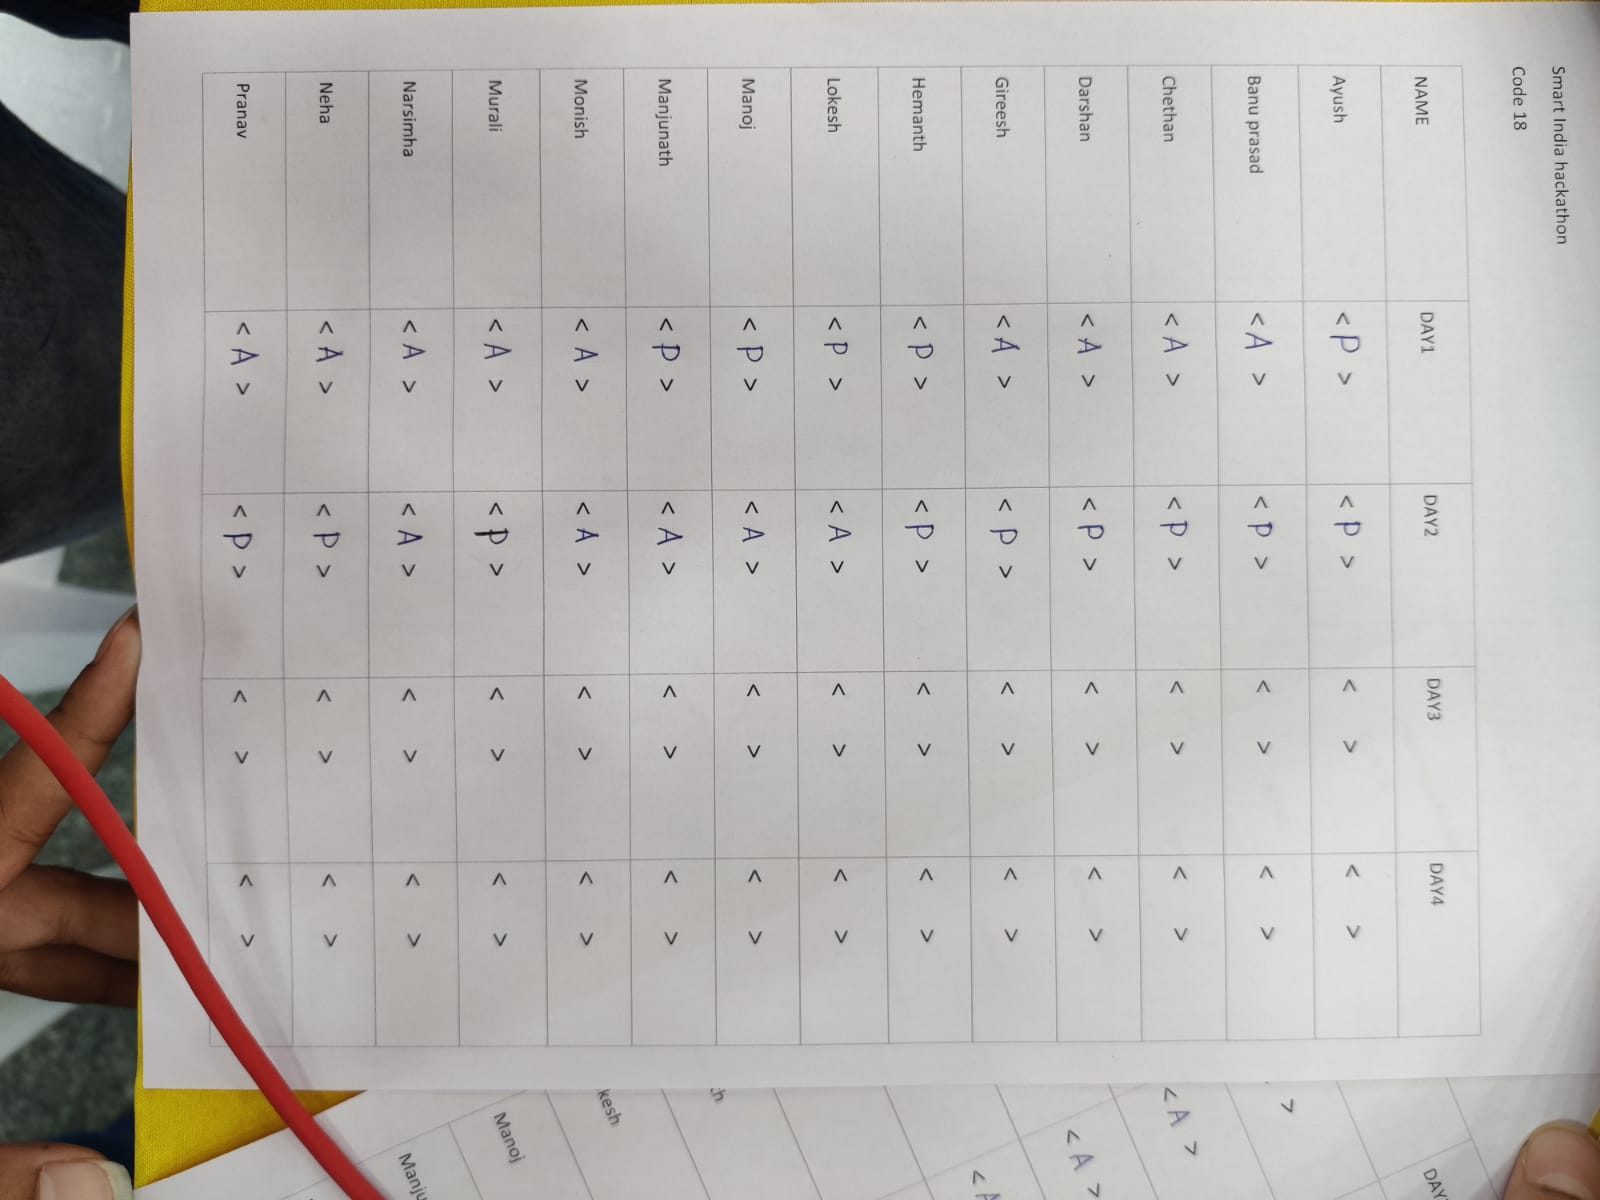 Smart India hackathon
Code 18
NAME DAY1 DAY2 DAY3 DAY4
Ayush < P > < P > < > < >
Banu prasad < A > < P > < > < >
Chethan < A > < P > < > < >
Darshan < A > < P > < > < >
Gireesh < A > < P > < > < >
Hemanth < P > < P > < > < >
Lokesh < P > < A > < > < >
Manoj < P > < A > < > < >
Manjunath < P > < A > < > < >
Monish < A > < A > < > < >
Murali < A > < P > < > < >
Narsimha < A > < A > < > < >
Neha < A > < P > < > < >
Pranav < A > < P > < > < >
DAY
>
< A >
< A >
< A
kesh
Manoj
Manju